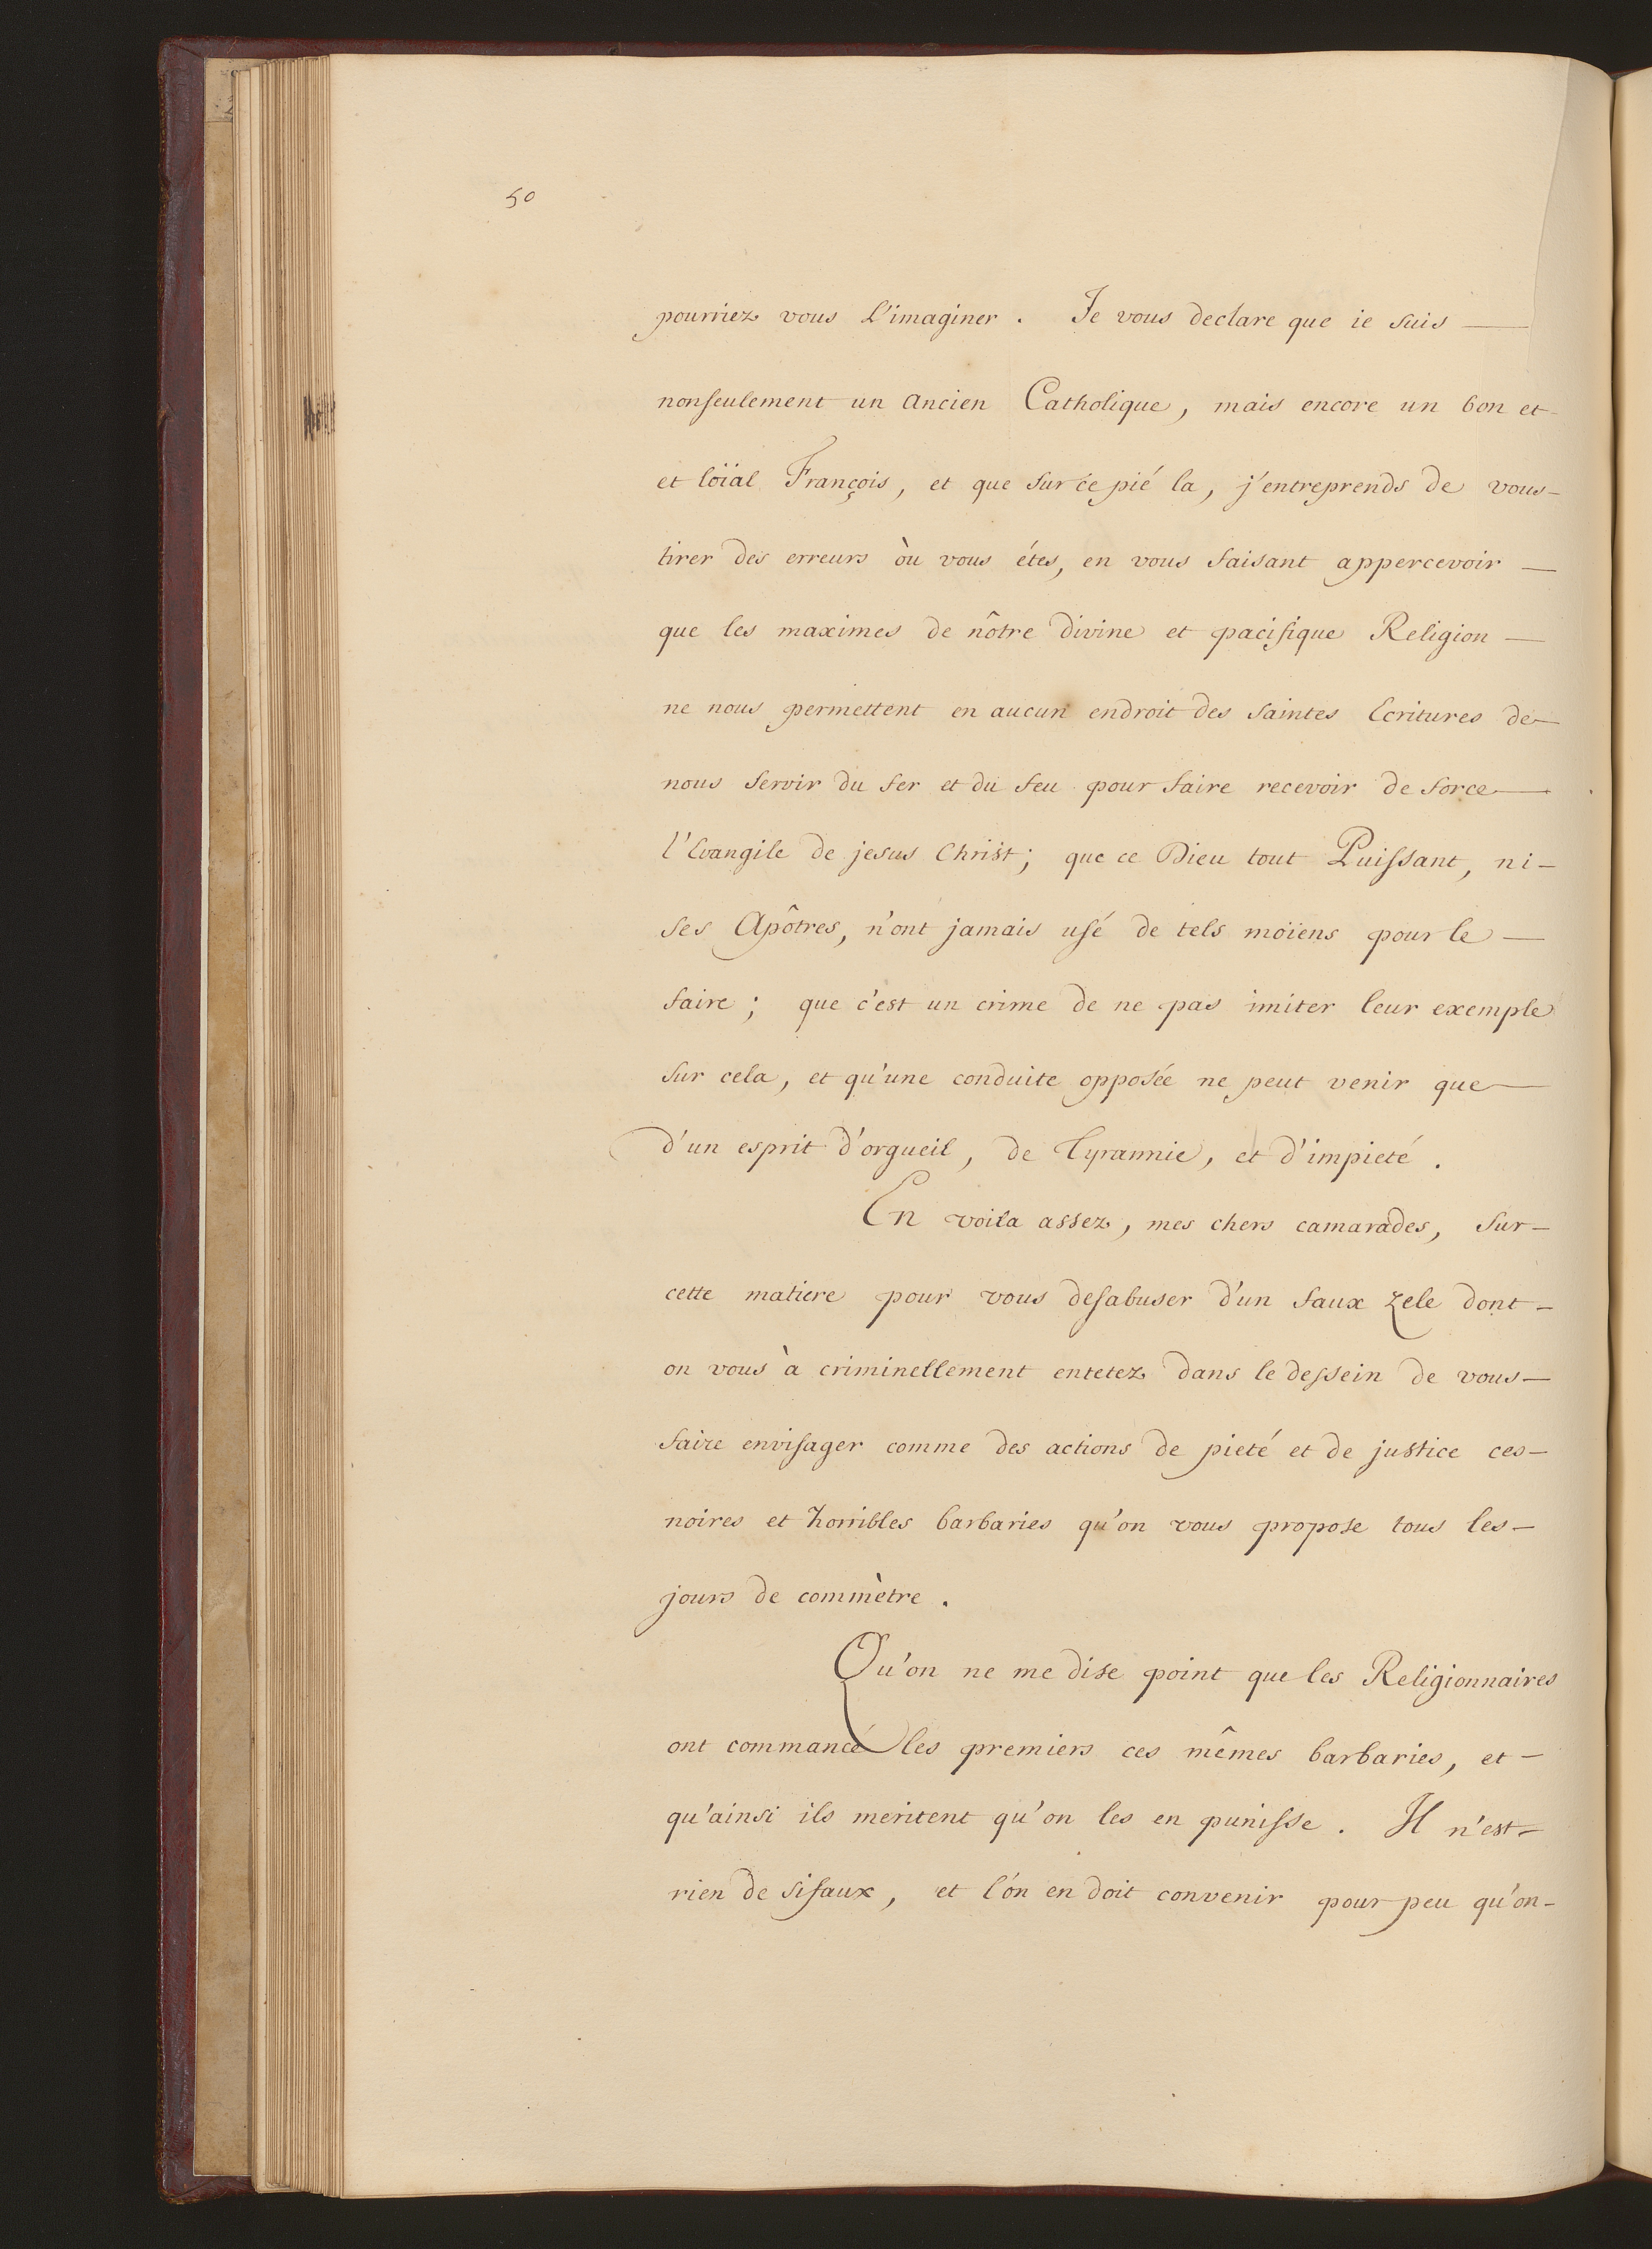 50
pourriez vous L'imaginer. Je vous declare que ie suis —
nonseulement un Ancien Catholique, mais encore un bon et -
et löial François, et que sur ce pié la, j'entreprends de vous -
tirer des erreurs òu vous étes, en vous faisant appercevoir —
que les maximes de nôtre divine et pacifique Religion —
ne nous permettent en aucun endroit des saintes Ecritures de —
nous servir du fer et du feu pour faire recevoir de force —
l'Evangile de jesus Christ; que ce Dieu tout Puissant, ni -
ses Apôtres, n'ont jamais usé de tels moïens pour le —
faire; que c'est un crime de ne pas imiter leur exemple
sur cela, et qu'une conduite opposée ne peut venir que —
d'un esprit d'orgueil, de Tyrannie, et d'impieté.
En voila assez, mes chers camarades, sur -
cette matiere pour vous desabuser d'un faux zele dont -
on vous à criminellement entetez dans le dessein de vous —
faire envisager comme des actions de pieté et de justice ces -
noires et horribles barbaries qu'on vous propose tous les -
jours de commètre.
Qu'on ne me dise point que les Religionnaires
ont commancé les premiers ces mêmes barbaries, et -
qu'ainsi ils meritent qu'on les en punisse. Il n'est -
rien de si faux, et l'ón en doit convenir pour peu qu'on -